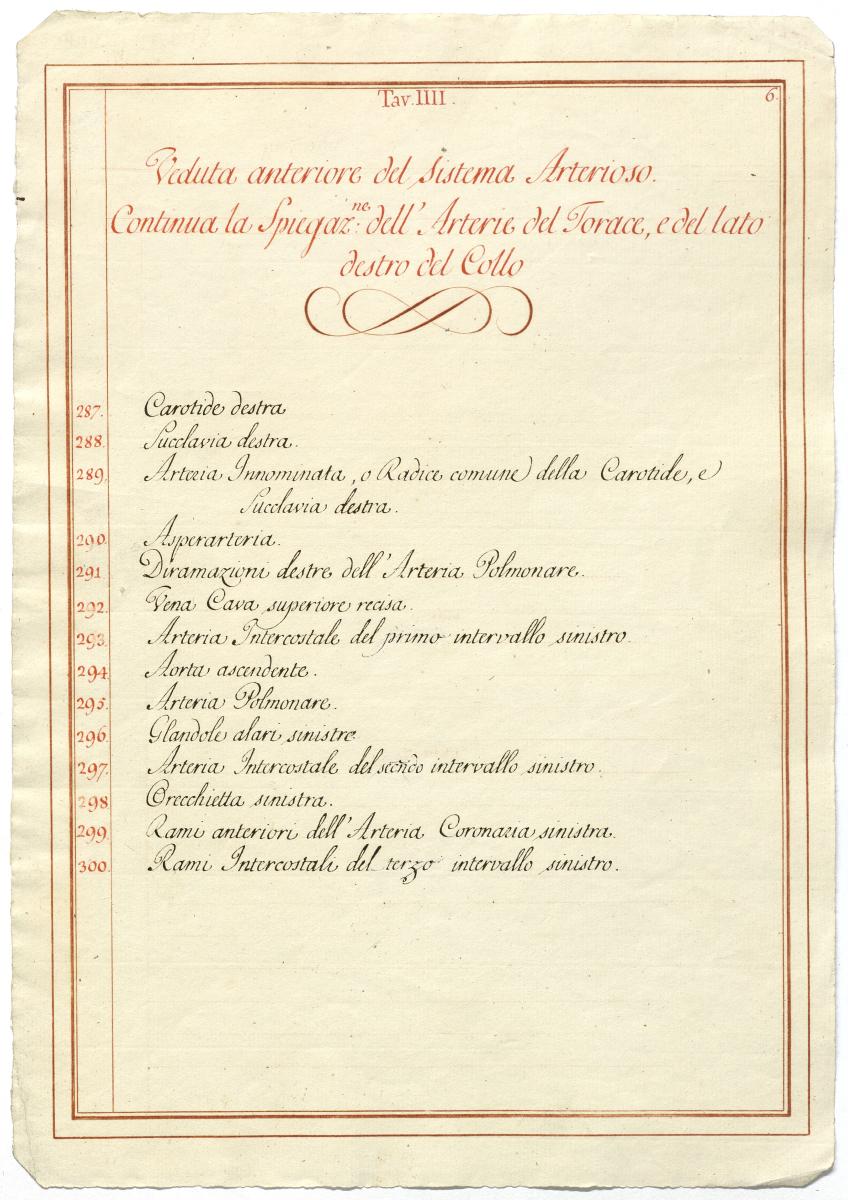 Tav. IIII.
6.
Veduta anteriore del Sistema Arterioso.
Continua la Spiegaz:ne dell'Arterie del Torace, e del lato
destro del Collo
287. Carotide destra
288. Succlavia destra.
289. Arteria Innominata, o Radice comune della Carotide, e
Succlavia destra.
290. Asperarteria.
291 Diramazioni destre dell'Arteria Polmonare.
292. Vena Cava superiore recisa.
293. Arteria Intercostale del primo intervallo sinistro.
294. Aorta ascendente.
295. Arteria Polmonare.
296. Glandole alari sinistre.
297. Arteria Intercostale del secondo intervallo sinistro.
298 Orecchietta sinistra.
299. Rami anteriori dell'Arteria Coronaria sinistra.
300. Rami Intercostali del terzo intervallo sinistro.